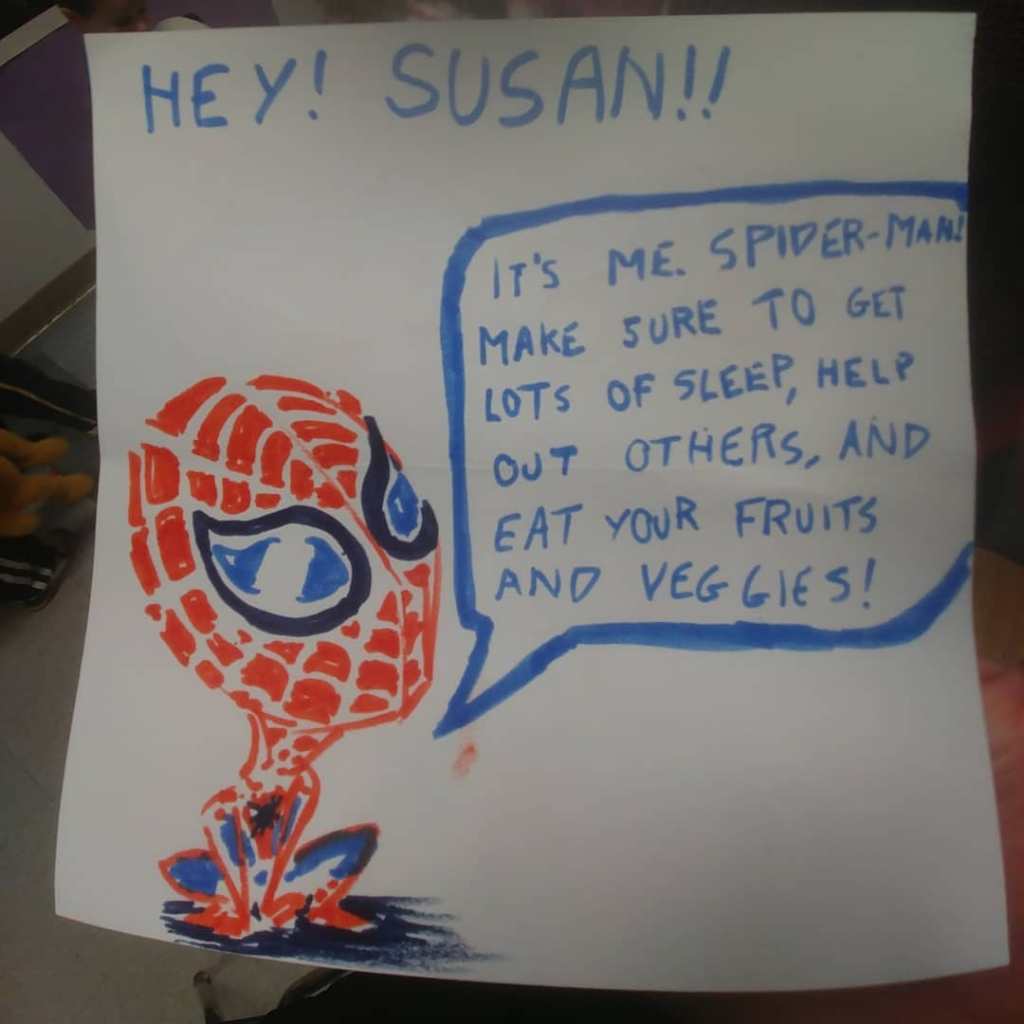 HEY! SUSAN!!
IT'S ME. SPIDER-MAN!
MAKE SURE TO GET
LOTS OF SLEEP, HELP
OUT OTHERS, AND
EAT YOUR FRUITS
AND VEGGIES!